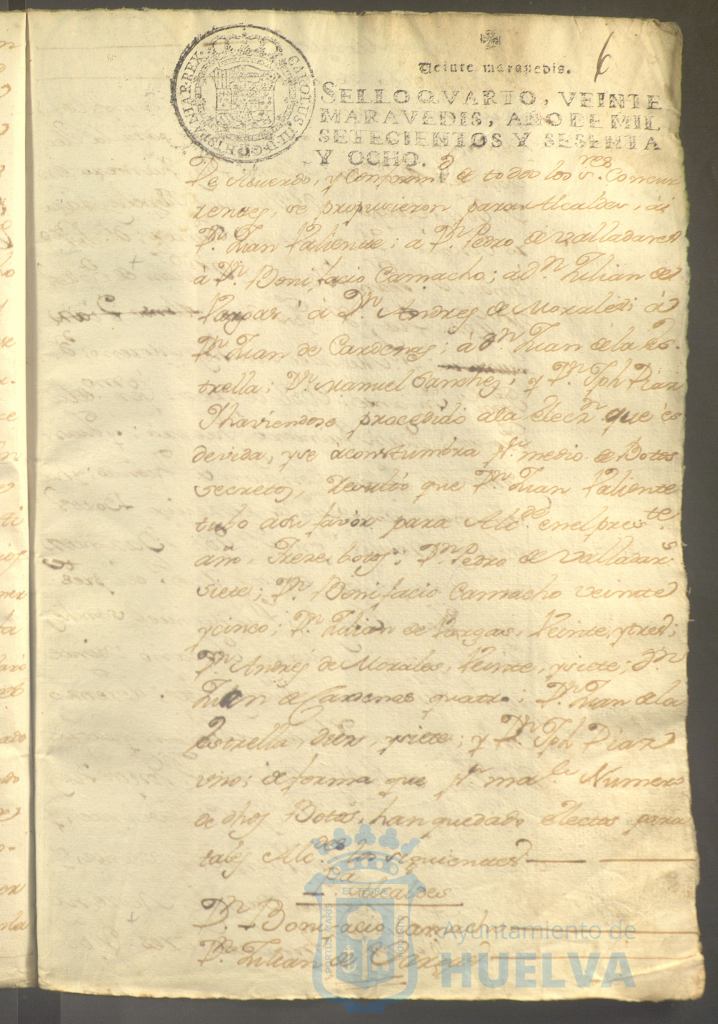 6
Veinte maravedis.
SELLO QVARTO, VEINTE
MARAVEDIS, AÑO DE MIL
SETECIENTOS Y SESENTA
Y OCHO.
CAROLUS III D G HISPANIAR REX
De Acuerdo, y Conform.d de todos los s.res Concur
rentes, se propusieron para Alcaldes, á
D.n Juan Valiente; à D.n Pedro de Valladares
à D.n Bonifacio Camacho; à d.n Julian de
Vargas; à D.n Andres de Morales; à
D.n Juan de Cardenas; à d.n Juan de la Es-
trella; D.n Manuel Sanchez; y D.n Jph Diaz
Y haviendose procedido ala elecz.n que es
devida, y se acostumbra p.r medio de Botos
secretos, resultó que D.n Juan Valiente
tubo asu favor para Alc.de en el pres.te
año, Treze botos; D.n Pedro de Valladar.s
siete; D.n Bonifacio Camacho veinte
y cinco; D.n Julian de Vargas, Veinte, y tres;
D.n Andres de Morales, Veinte, y siete; D.n
Juan de Cardenas quatro; D.n Juan de la
Estrella, diez, y siete; y D.n Jph Diaz
uno; de forma que p.r Numero
de dhos Botos, han quedado electos para
tales Alc.des los siguientes
Alcaldes
D.n Bonifacio Camacho
D.n Julian de Vargas
Ayuntamiento de
HUELVA